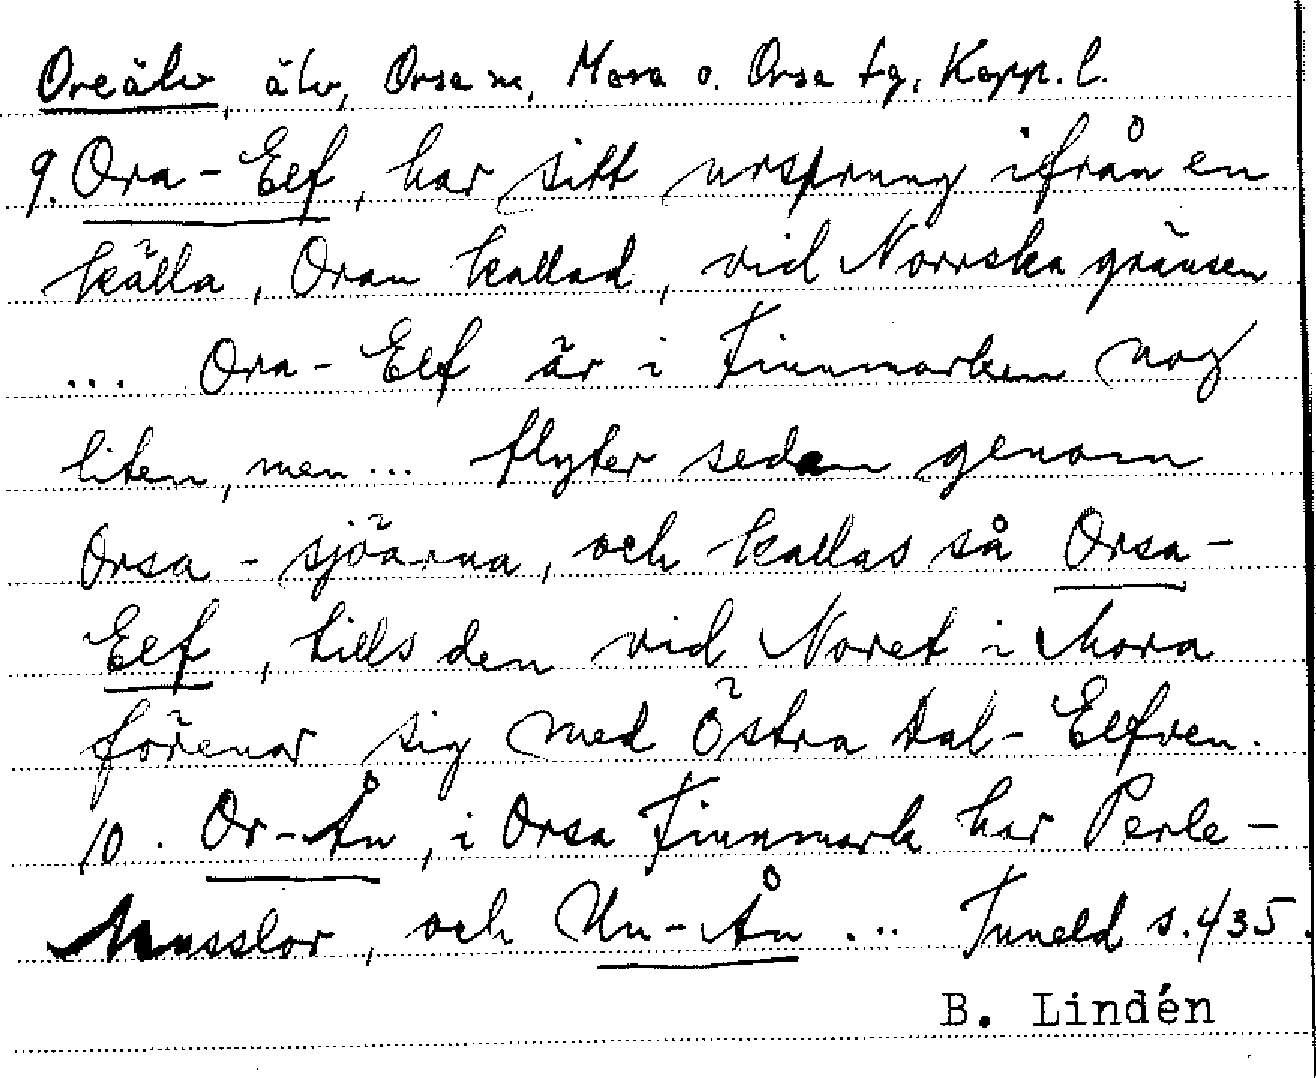 Oreälv, älv, Orsa sn, Mora o. Orsa tg, Kopp. l.
9. Ora-Elf, har sitt ursprung ifrån en
källa, Oran kallad, vid Norrska gränsen
... Ora-Elf är i Finnmarken nog
liten, men ... flyter sedan genom
Orsa-sjöarna, och kallas så Orsa-
Elf, tills den vid Noret i Mora
förenar sig med Östra Dal-Elfven.
10. Or-Ån, i Orsa Finnmark har Perle-
Musslor, och Un-Ån ... Tuneld s. 435.
B. Lindén